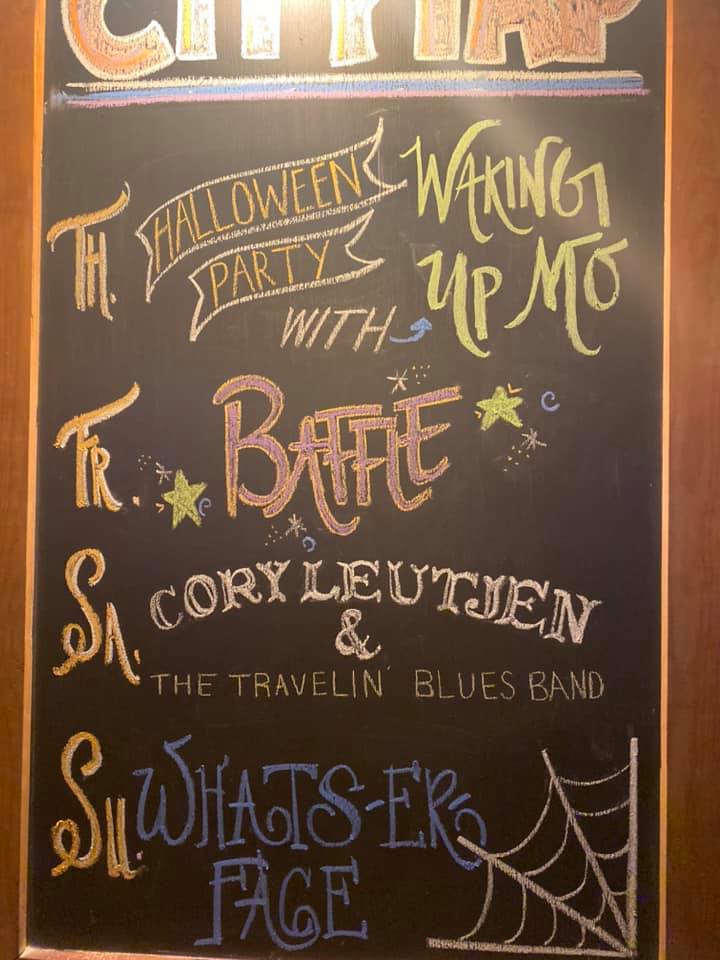 CITYTAP
TH.
HALLOWEEN
PARTY
WITH
WAKING
UP MO
FR.
BAFFLE
SA.
CORY LEUTJEN
&
THE TRAVELIN' BLUES BAND
SU.
WHATS-ER
FACE